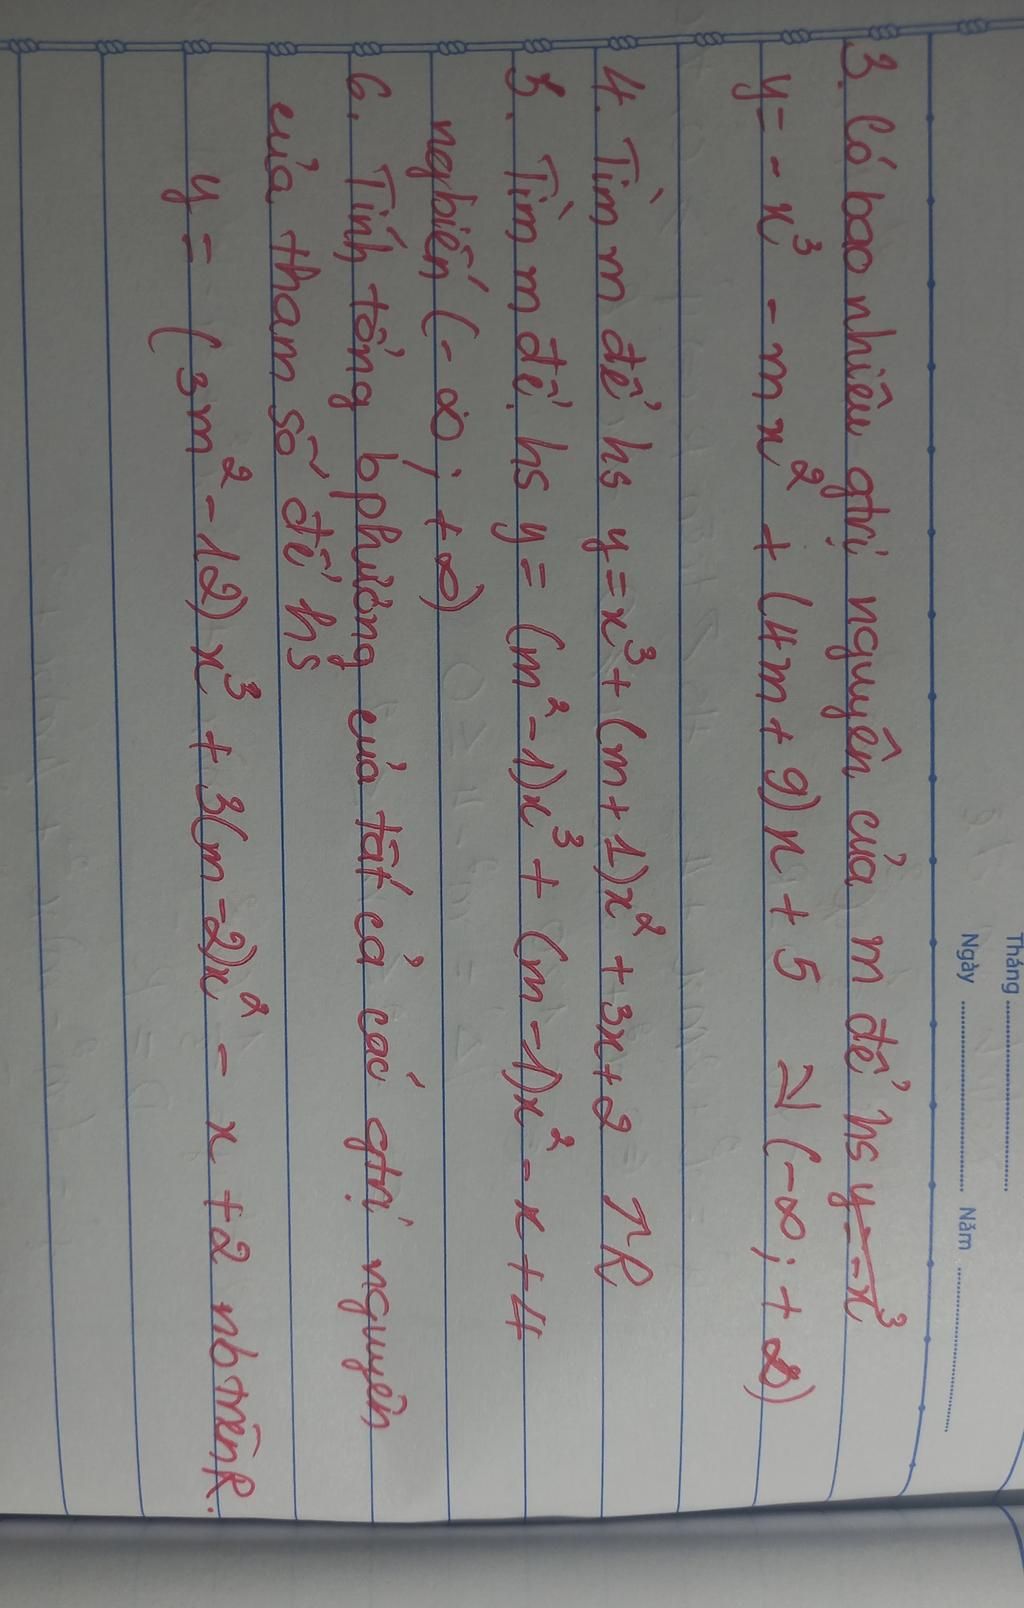 Tháng
Ngày Năm
3. Có bao nhiêu gtrị nguyên của m để hs y = -x³
y = - x³ - mx² + (4m + 9)x + 5 (-∞; +∞)
4. Tìm m để hs y = x³ + (m + 1)x² + 3x + 2 ↑ R
5. Tìm m để hs y = (m² - 1)x³ + (m - 1)x² - x + 4
nghiến (-∞; +∞)
6. Tính tổng bphương của tất cả các gtrị nguyên
của tham số để hs
y = (3m² - 12)x³ + 3(m - 2)x² - x + 2 nb trên R.